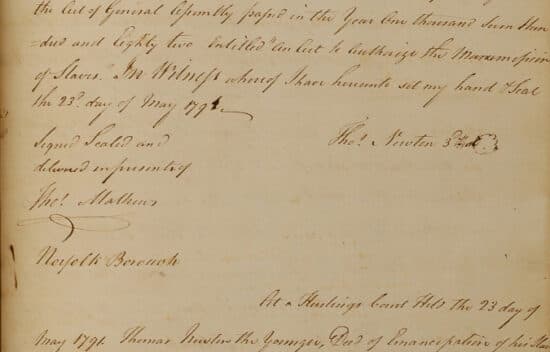 the Act of General Assembly passed in the Year One thousand Seven Hun
=dred and Eighty two Entitled "An Act to Authorize the Manumission
of Slaves." In Witness whereof I have hereunto set my hand & Seal
the 23d. day of May 1791
Thos. Newton
Signed Sealed and
delivered in presents of
Thos. Mathews
Norfolk Borough
At a Hustings Court Held the 23 day of
May 1791. Thomas Newton the Younger, Deed of Emancipation of his Slave